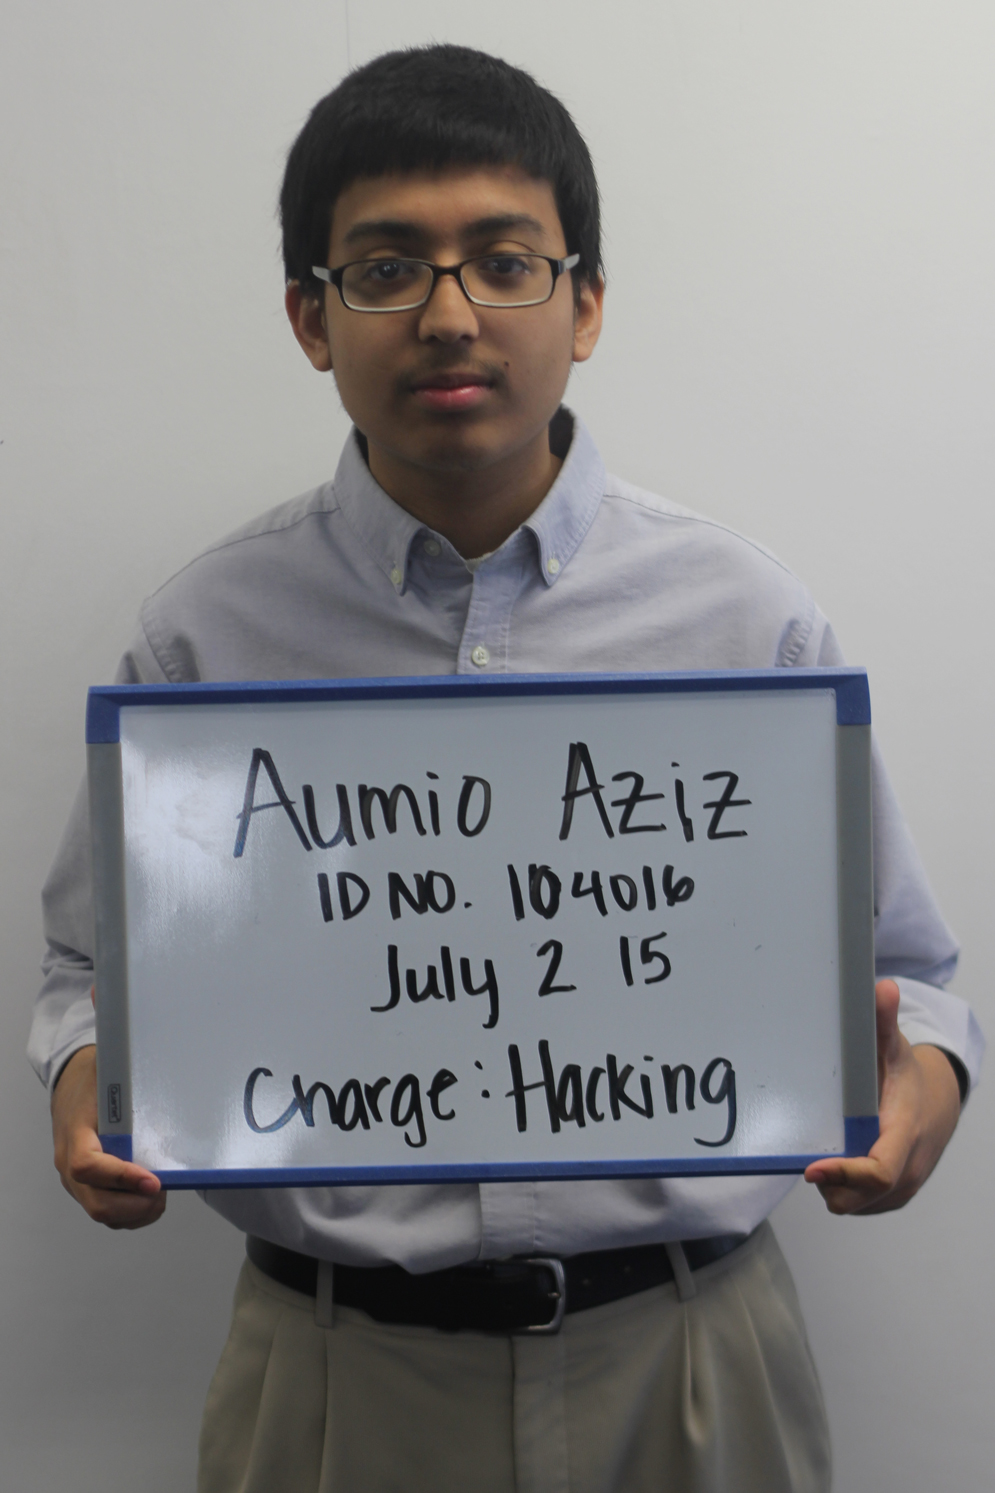 Aumio Aziz
ID NO. 104016
July 2 15
Charge: Hacking
Quartet